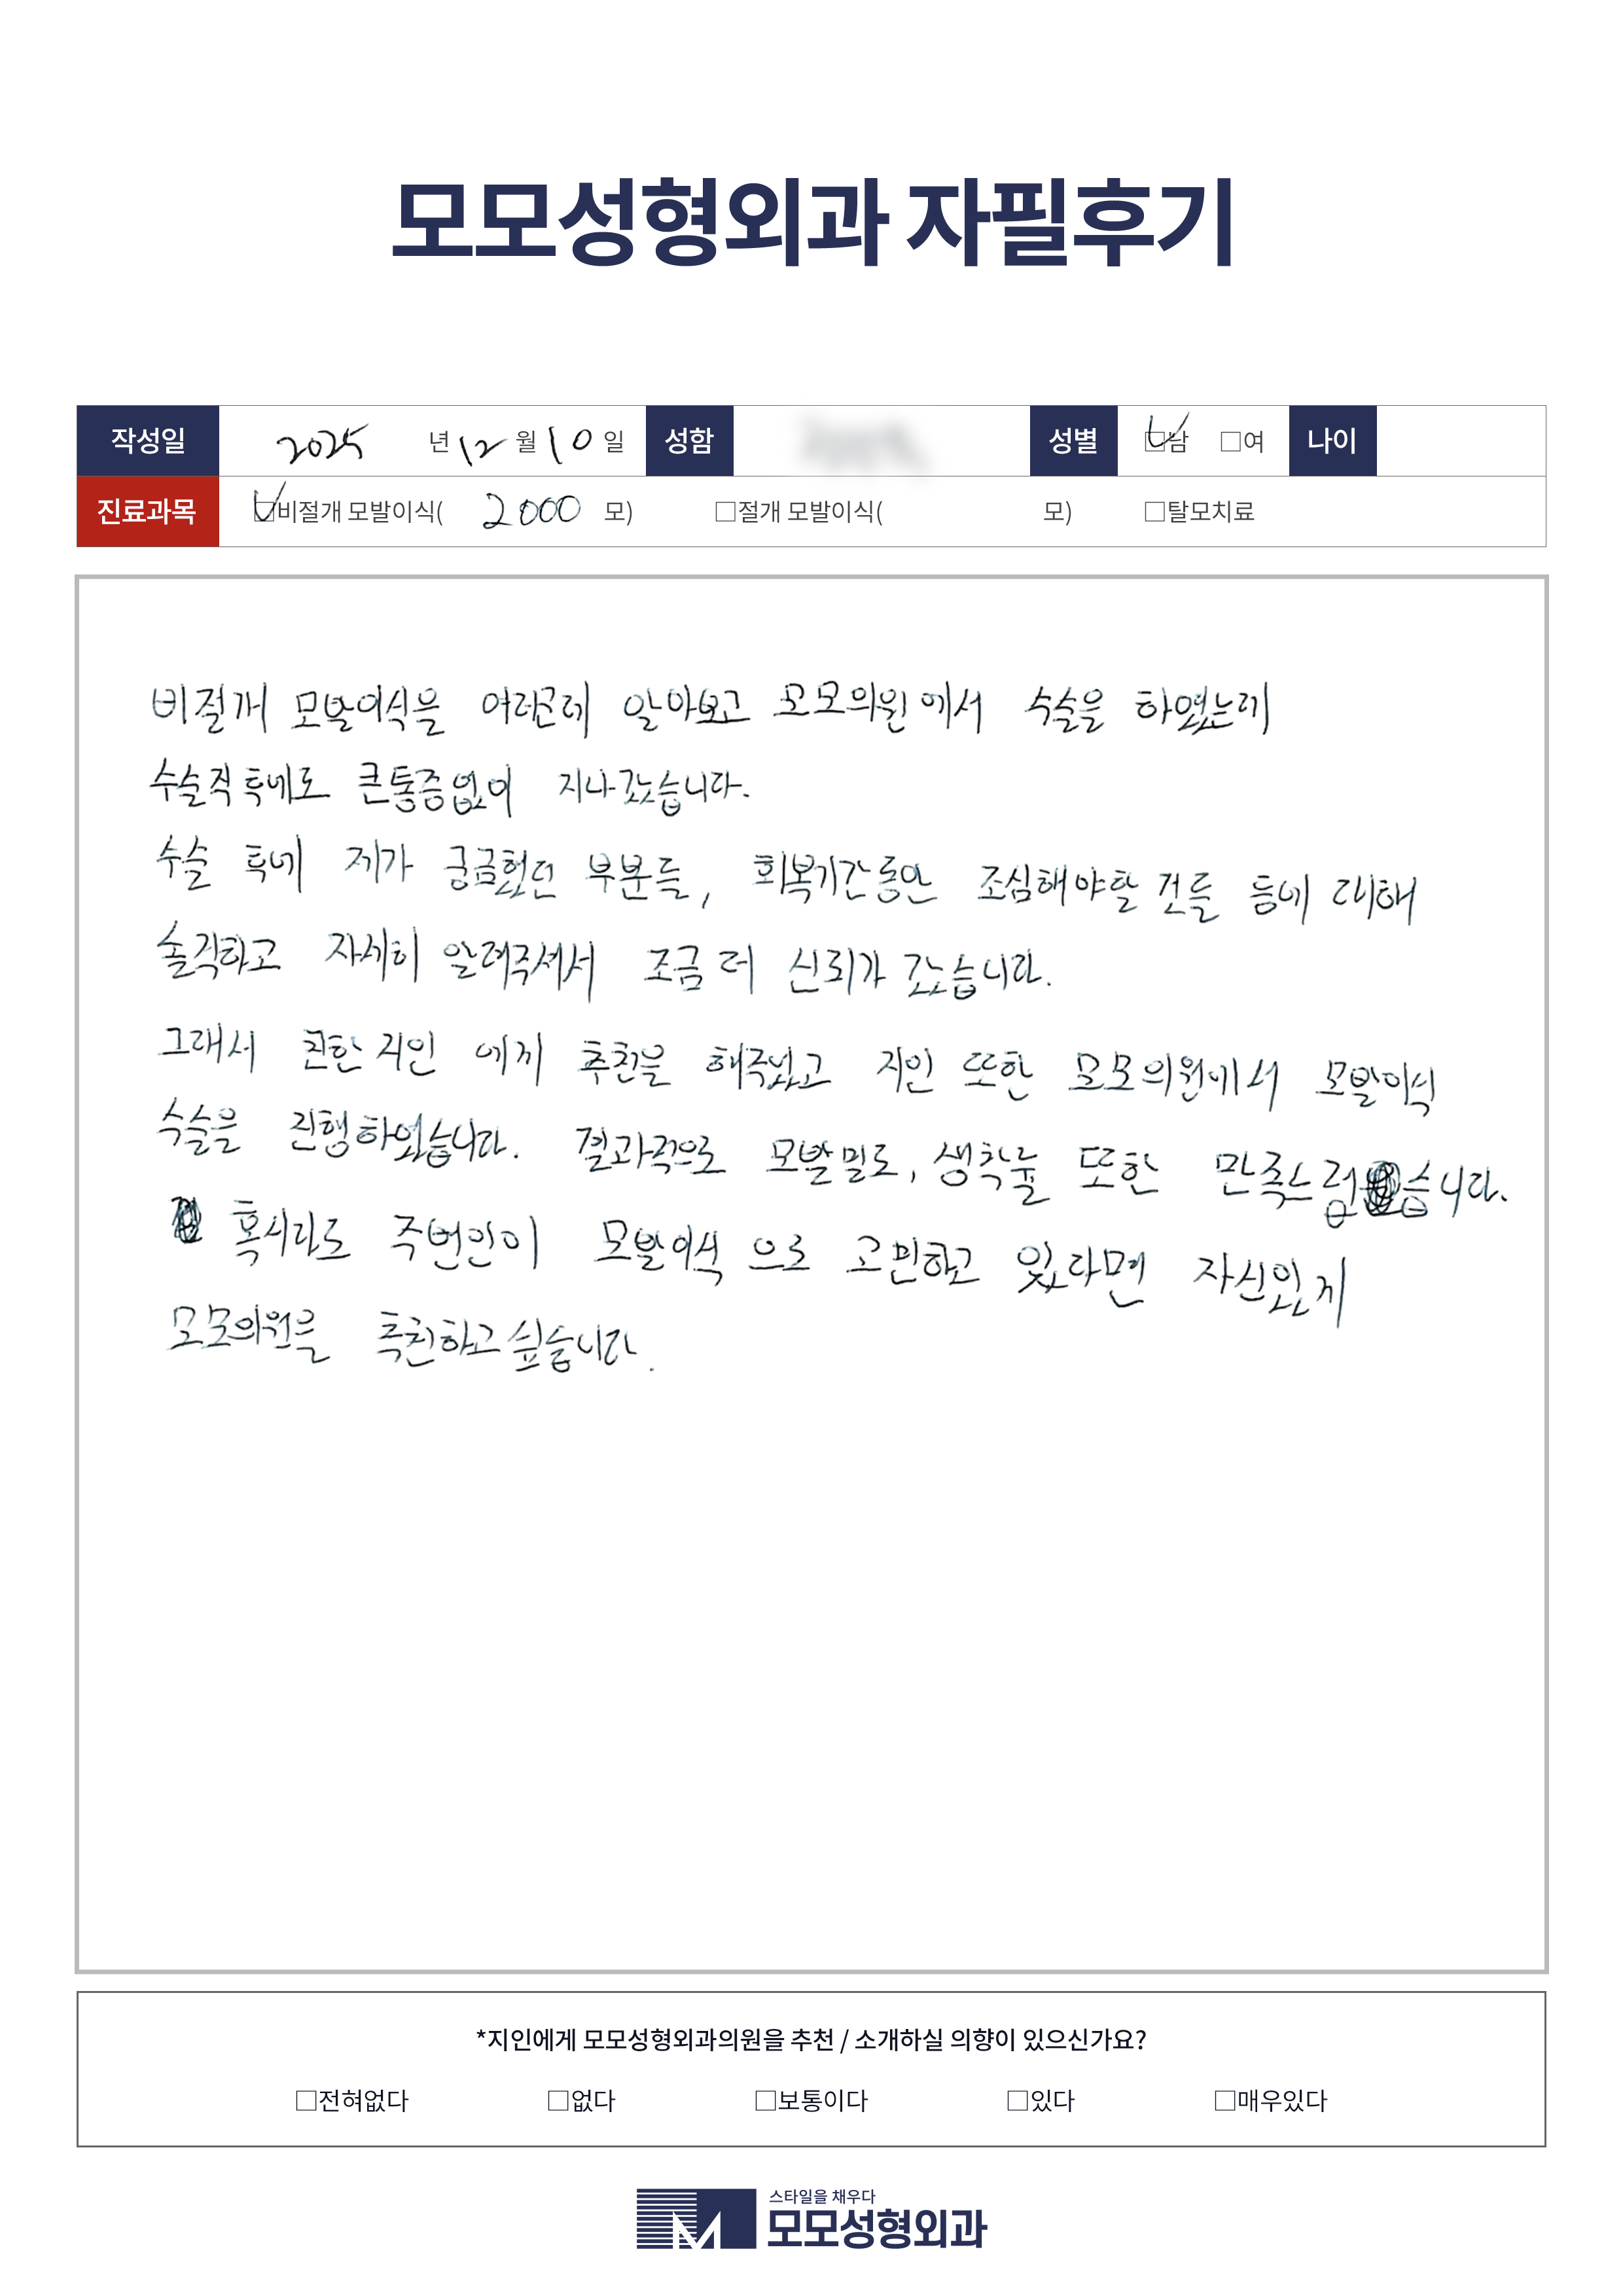 모모성형외과 자필후기
작성일 2025 년 12 월 10 일 성함 성별 ☑남 □여 나이
진료과목 ☑비절개 모발이식( 2000 모) □절개 모발이식( 모) □탈모치료
비절개 모발이식을 여러군데 알아보고 모모의원에서 수술을 하였는데
수술직후에도 큰통증없이 지나갔습니다.
수술 후에 제가 궁금했던 부분들, 회복기간동안 조심해야할 건들 등에 대해
솔직하고 자세히 알려주셔서 조금 더 신뢰가 갔습니다.
그래서 친한지인 에게 추천을 해주었고 지인 또한 모모의원에서 모발이식
수술을 진행하였습니다. 결과적으로 모발밀도, 생착율 또한 만족스럽습니다.
혹시라도 주변인이 모발이식 으로 고민하고 있다면 자신있게
모모의원을 추천하고싶습니다.
*지인에게 모모성형외과의원을 추천 / 소개하실 의향이 있으신가요?
□전혀없다 □없다 □보통이다 □있다 □매우있다
스타일을 채우다
모모성형외과